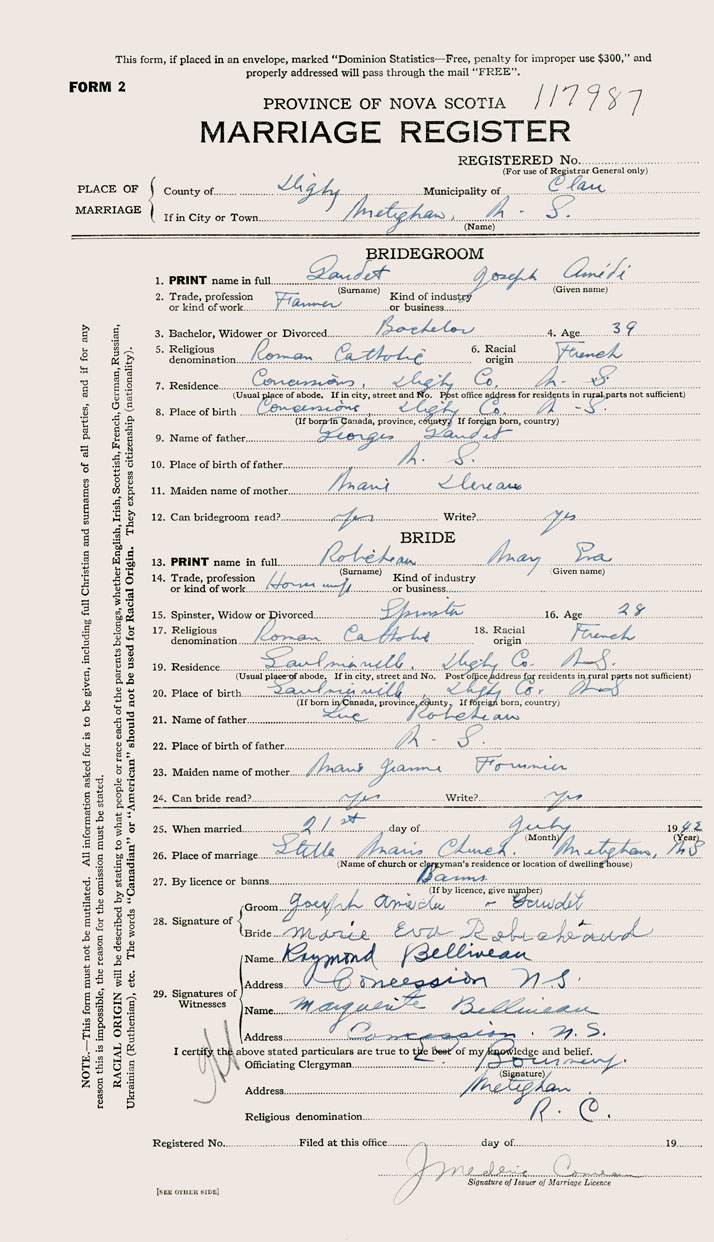 This form, if placed in an envelope, marked "Dominion Statistics—Free, penalty for improper use $300," and
properly addressed will pass through the mail "FREE".
FORM 2
PROVINCE OF NOVA SCOTIA 117987
MARRIAGE REGISTER
REGISTERED No.
(For use of Registrar General only)
PLACE OF MARRIAGE
County of Digby Municipality of Clare
If in City or Town Meteghan, N. S.
(Name)
BRIDEGROOM
1. PRINT name in full Gaudet Joseph Amédé
(Surname) (Given name)
2. Trade, profession or kind of work Farmer Kind of industry or business
3. Bachelor, Widower or Divorced Bachelor 4. Age 39
5. Religious denomination Roman Catholic 6. Racial origin French
7. Residence Concessions, Digby Co. N. S.
(Usual place of abode. If in city, street and No. Post office address for residents in rural parts not sufficient)
8. Place of birth Concessions, Digby Co. N. S.
(If born in Canada, province, county, If foreign born, country)
9. Name of father Georges Gaudet
10. Place of birth of father N. S.
11. Maiden name of mother Marie
12. Can bridegroom read? yes Write? yes
BRIDE
13. PRINT name in full Robicheau Mary Eva
(Surname) (Given name)
14. Trade, profession or kind of work Housewife Kind of industry or business
15. Spinster, Widow or Divorced Spinster 16. Age 28
17. Religious denomination Roman Catholic 18. Racial origin French
19. Residence Saulnierville, Digby Co. N.S.
(Usual place of abode. If in city, street and No. Post office address for residents in rural parts not sufficient)
20. Place of birth Saulnierville, Digby Co. N.S.
(If born in Canada, province, county, If foreign born, country)
21. Name of father Luc Robicheau
22. Place of birth of father N. S.
23. Maiden name of mother Marie Jeanne Fournier
24. Can bride read? yes Write? yes
25. When married 21st day of July 1942
(Month) (Year)
26. Place of marriage Stella Maris Church, Meteghan, N.S
(Name of church or clergyman's residence or location of dwelling house)
27. By licence or banns Banns
(If by licence, give number)
28. Signature of
Groom Joseph Amédée - Gaudet
Bride Marie Eva Robichaud
29. Signatures of Witnesses
Name Raymond Belliveau
Address Concession N.S.
Name Marguerite Belliveau
Address Concession. N.S.
I certify the above stated particulars are true to the best of my knowledge and belief.
Officiating Clergyman
(Signature)
Address Meteghan
Religious denomination R. C.
Registered No. Filed at this office day of 19
J Mederic Comeau
Signature of Issuer of Marriage Licence
[SEE OTHER SIDE]
NOTE.—This form must not be mutilated. All information asked for is to be given, including full Christian and surnames of all parties, and if for any
reason this is impossible, the reason for the omission must be stated.
RACIAL ORIGIN will be described by stating to what people or race each of the parents belongs, whether English, Irish, Scottish, French, German, Russian,
Ukrainian (Ruthenian), etc. The words "Canadian" or "American" should not be used for Racial Origin. They express citizenship (nationality).